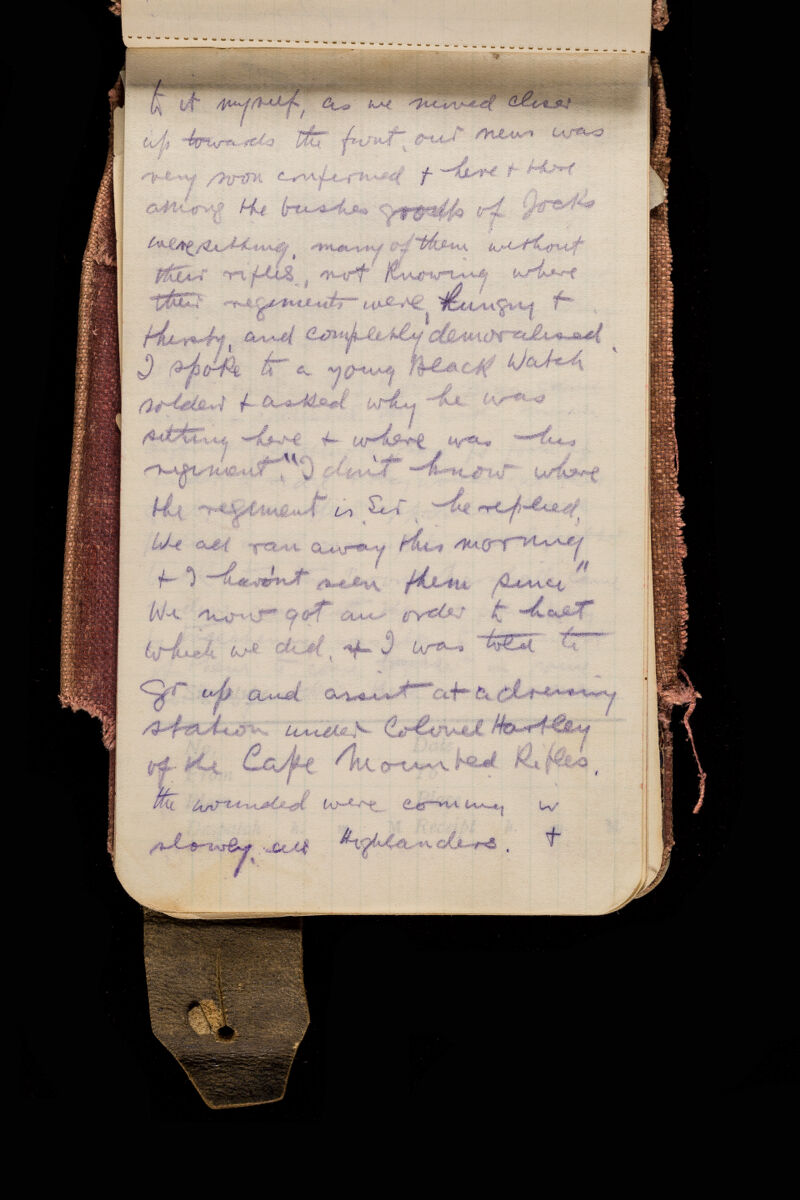 to it myself, as we moved closer
up towards the front, our news was
very soon confirmed + here + there
among the bushes of Jocks
were sitting, many of them without
their rifles, not Knowing where
their regiments were, hungry +
thirsty, and completely demoralised.
I spoke to a young Black Watch
soldeir + asked why he was
sitting here + where was his
regiment. "I don't know where
the regiment is, Sir, he replied,
We all ran away this morning
+ I havon't seen them since"
We now got an order to halt
which we did, + I was told to
go up and assist at a dressing
station under Colonel Hartley
of the Cape Mounted Rifles.
the wounded were comming in
slowly, all Highlanders. +